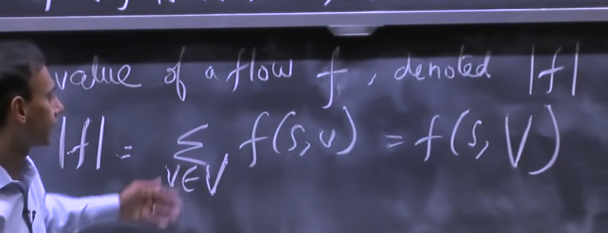 value of a flow f, denoted |f|
|f| = ∑_{v∈V} f(s,v) = f(s,V)